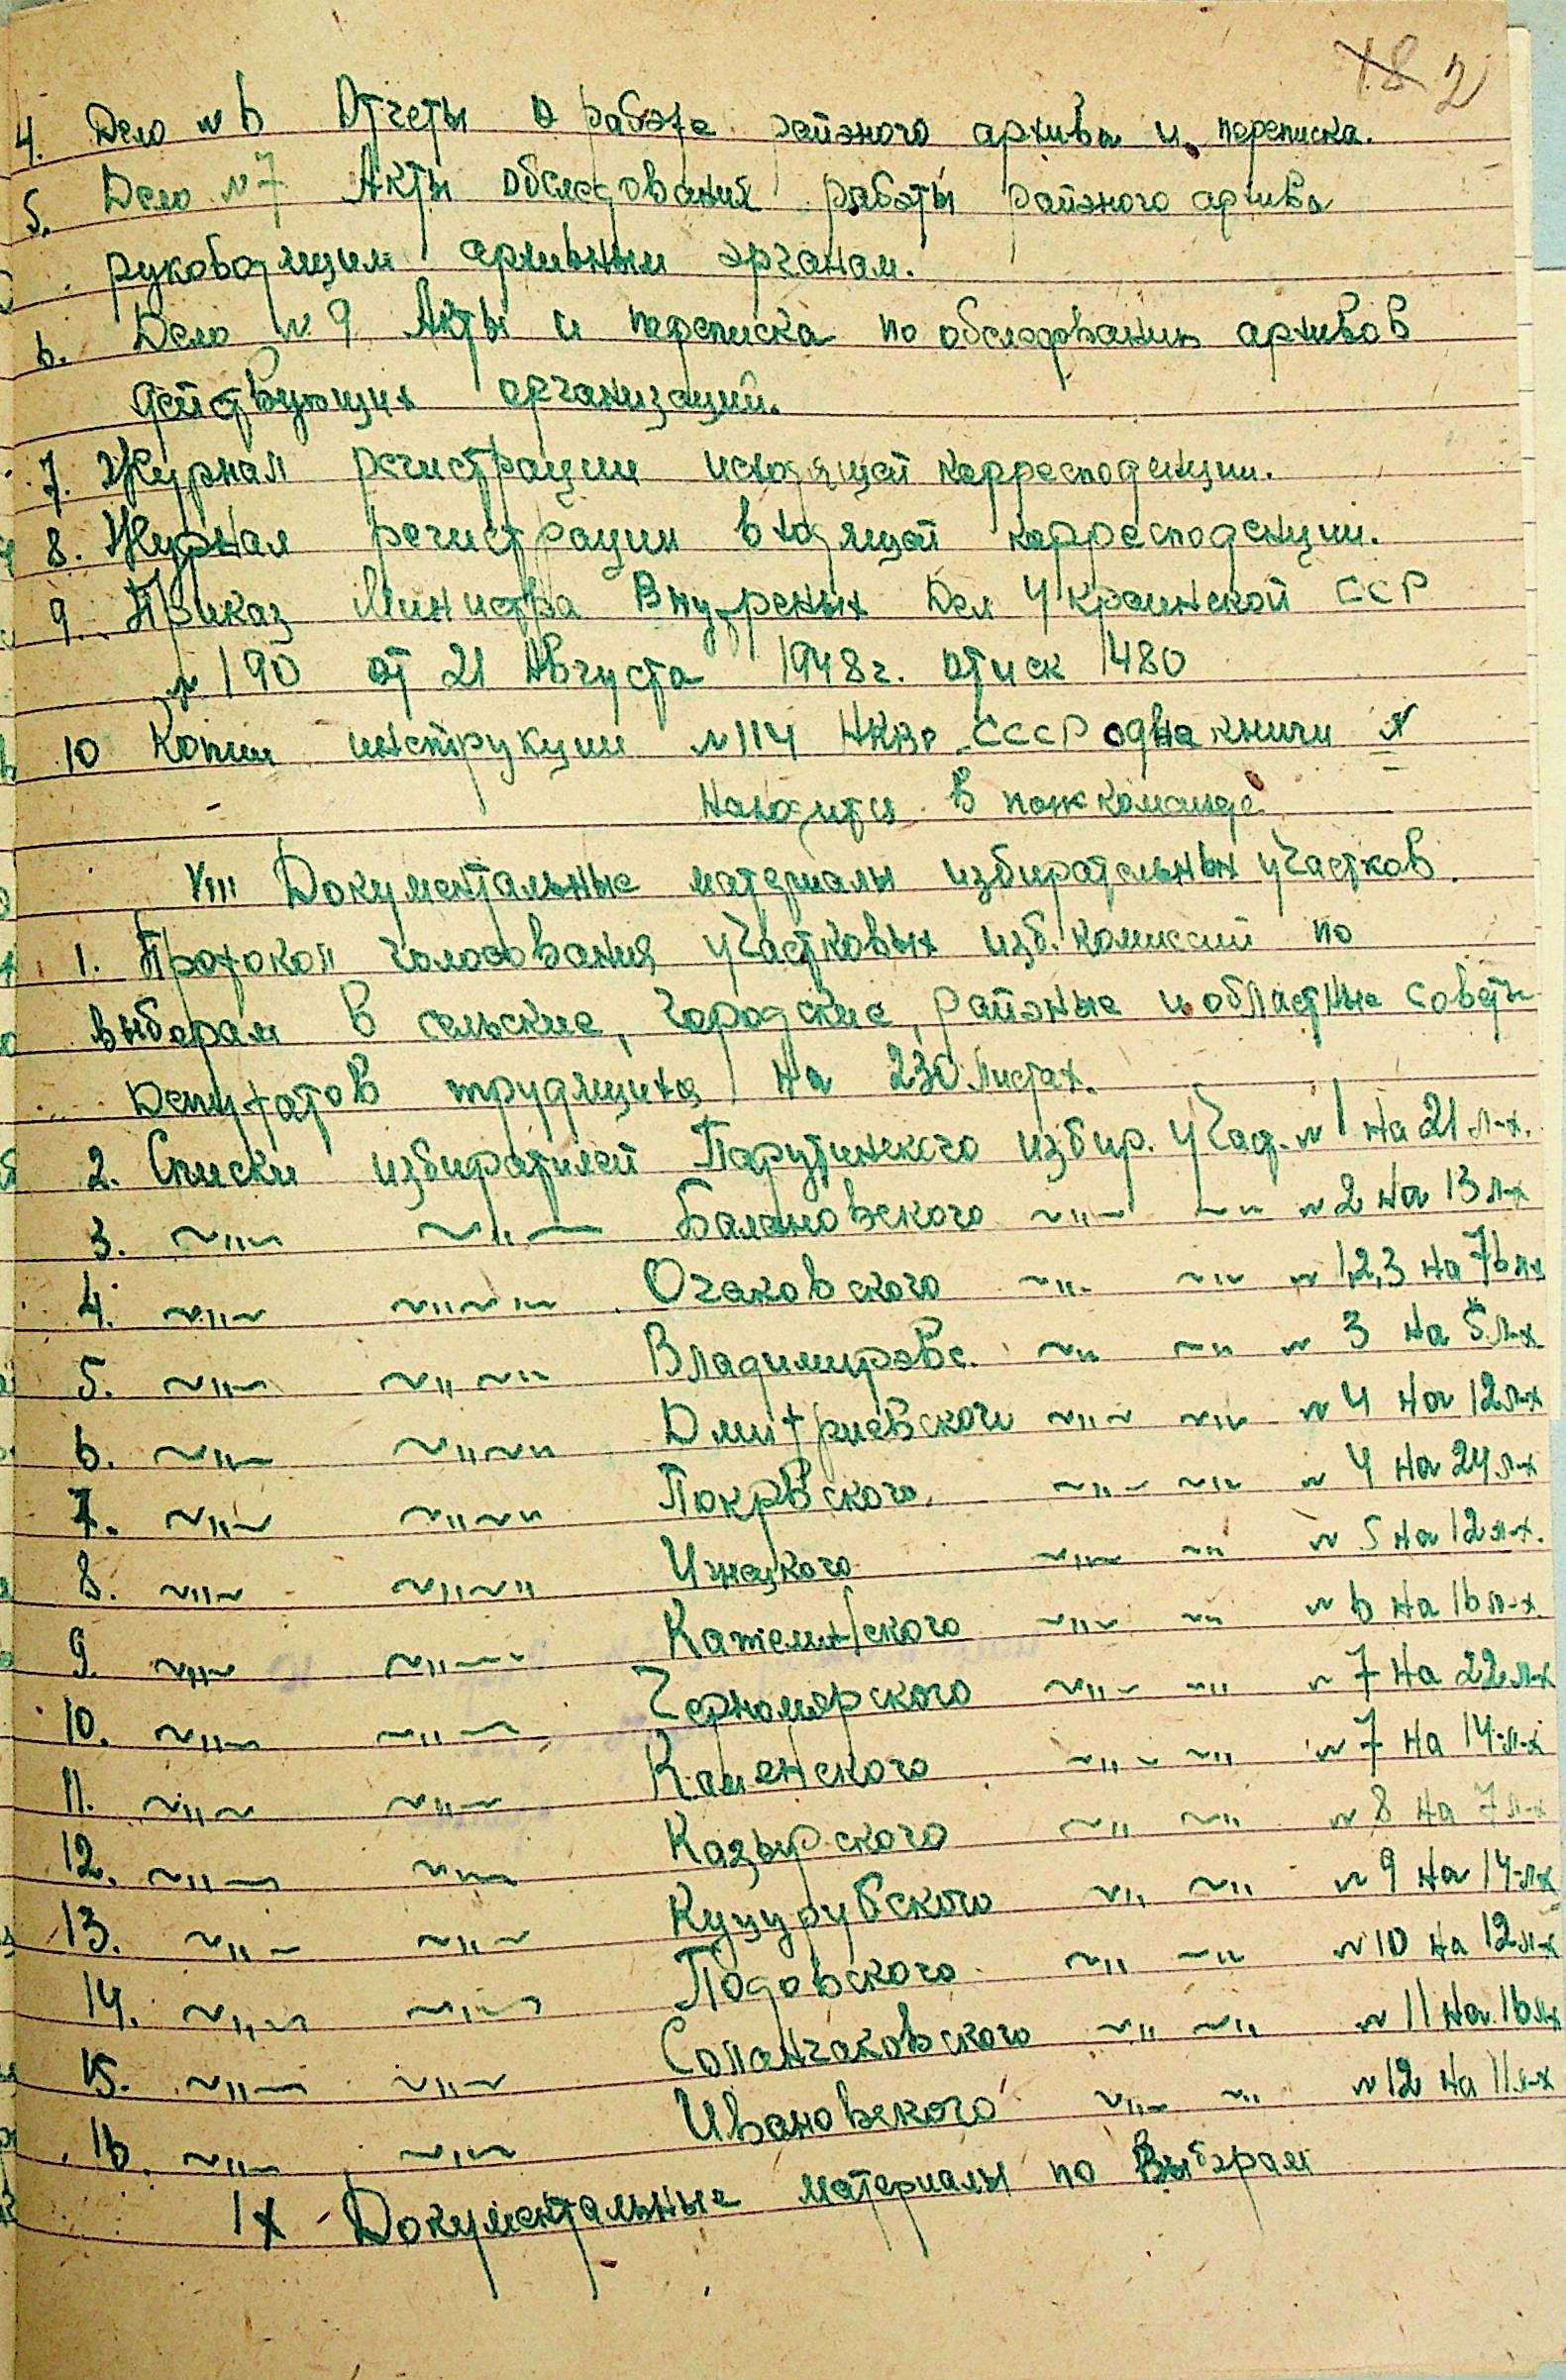 18 2
4. Дело № 6 Отчеты о работе районого архива и переписка.
5. Дело № 7 Акты обследования работы районого архива
руководящим архивным органам.
6. Дело № 9 Акты и переписка по обследованию архивов
действующих организаций.
7. Журнал регистрации исходящей корресподенции.
8. Журнал регистрации входящей корресподенции.
9. Приказ Министра Внутреных Дел Украинской ССР
№ 190 от 21 Августа 1948г. отиск 1480
10 Копии инструкции № 114 НКВД СССР одна книги
находится в пожкоманде
VIII Документальные материалы избирательных участков.
1. Протокол голосования участковых изб. комиссий по
выборам в сельские, городские, районые и областные советы
Депутатов трудящихся на 230 листах.
2. Списки избирателей Парутинского избир. участ. № 1 на 21 л-х.
3. ~"~ ~"~ Балановского ~"~ ~"~ № 2 на 13 л-х
4. ~"~ ~"~"~ Очаковского ~"~ ~"~ № 1,2,3 на 76 л-х
5. ~"~ ~"~" Владимировс. ~" ~" № 3 на 5 л-х
6. ~"~ ~"~" Дмитриевского ~"~ ~"~ № 4 на 12 л-х
7. ~"~ ~"~" Покрвского ~"~ ~" № 4 на 24 л-х
8. ~"~ ~"~" Ижецкого ~"~ ~" № 5 на 12 л-х.
9. ~"~ ~"~ Кателинского ~"~ ~" № 6 на 16 л-х
10. ~"~ ~"~ Черноморского ~"~ ~" № 7 на 22 л-х
11. ~"~ ~"~ Каменского ~"~ ~" № 7 на 14 л-х
12. ~"~ ~"~ Казырского ~" ~" № 8 на 7 л-х
13. ~"~ ~"~ Куцурубского ~" ~" № 9 на 14 л-х
14. ~"~ ~"~ Подовского ~" ~" № 10 на 12 л-х
15. ~"~ ~"~ Солончаковского ~" ~" № 11 на 16 л-х
16. ~"~ ~"~ Ивановского ~"~ ~" № 12 на 11 л-х
IX Документальные материалы по Выборам